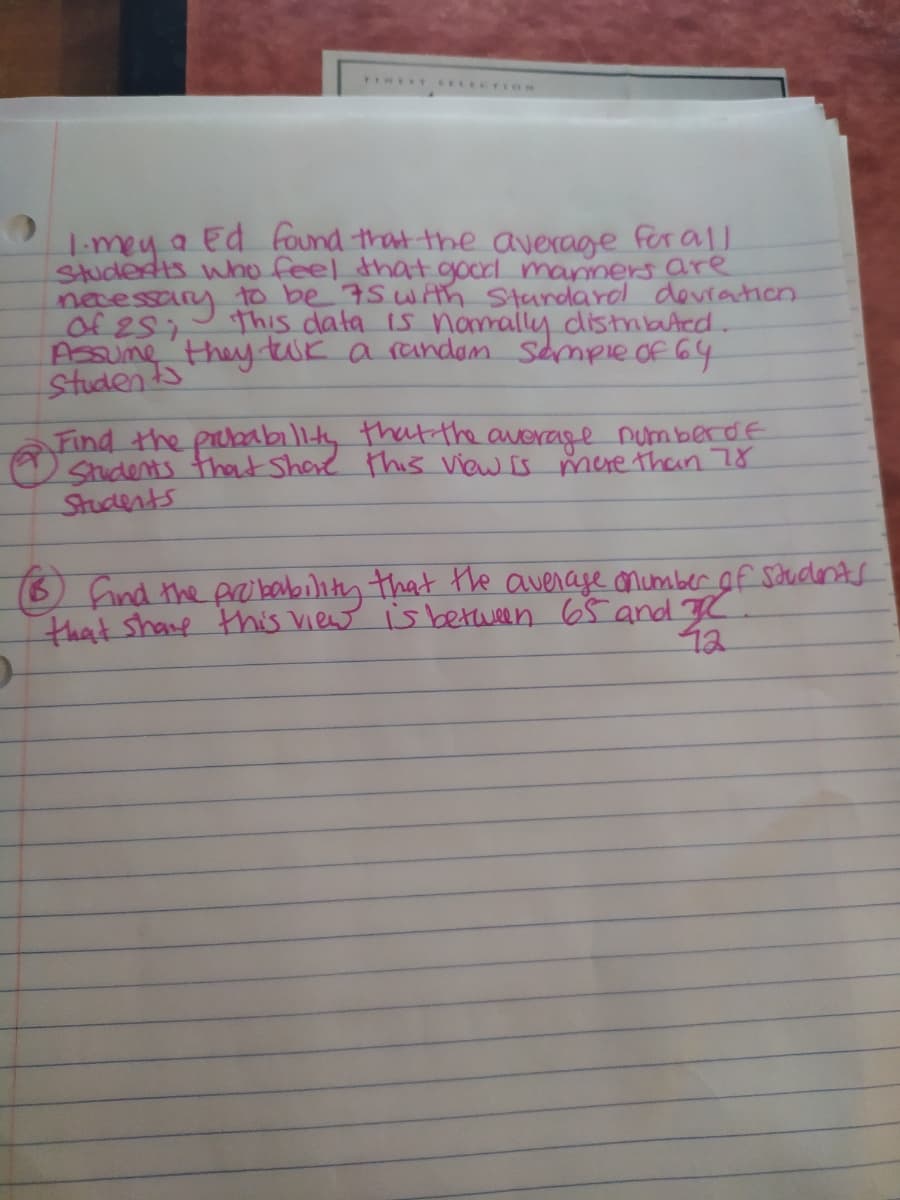 FINEST SELECTION
1. mey a Ed found that the average for all
students who feel that good manners are
necessary to be 75 with standard deviation
of 25; This data is normally distributed.
Assume they talk a random sample of 64
students
A Find the probability that the average number of
students that share this view is more than 78
students
B find the probability that the average number of students
that share this view is between 65 and
72